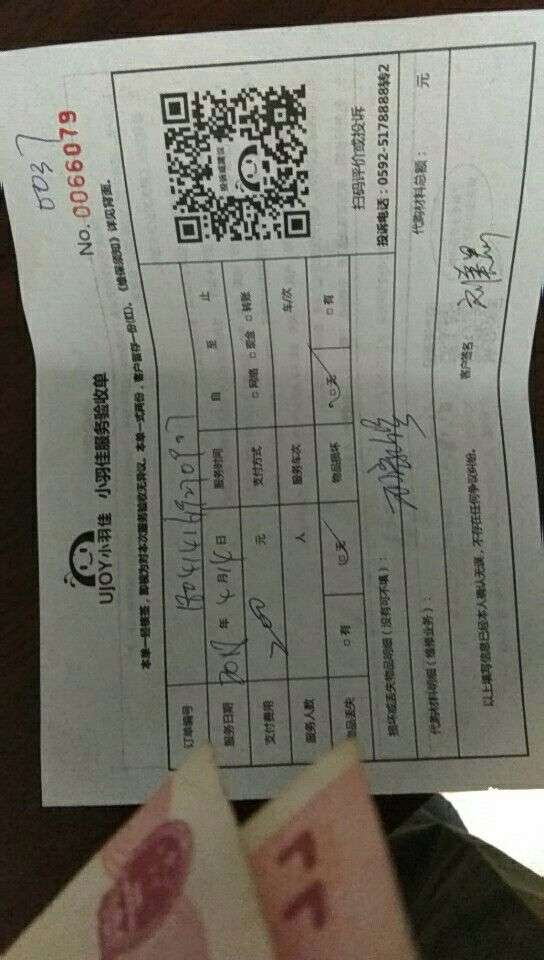 0037
No. 0066079
UJOY小羽佳 小羽佳服务验收单
本单一经核签，即视为对本次服务验收无异议。本单一式两份，客户留存一份(红)。《维保须知》详见背面。
订单编号
服务日期 2018 年 4 月 14 日 服务时间 自 至 止
支付费用 200 元 支付方式 □网络 □现金 □转账
服务人数 人 服务车次 车/次
物品丢失 □有 □无 物品损坏 □无 □有
扫码评价或投诉
投诉电话：0592-5178888转2
损坏或丢失物品明细（没有可不填）：
代购材料明细（维修业务）： 代购材料总额： 元
以上填写信息已经本人确认无误，不存在任何争议纠纷。 客户签名：